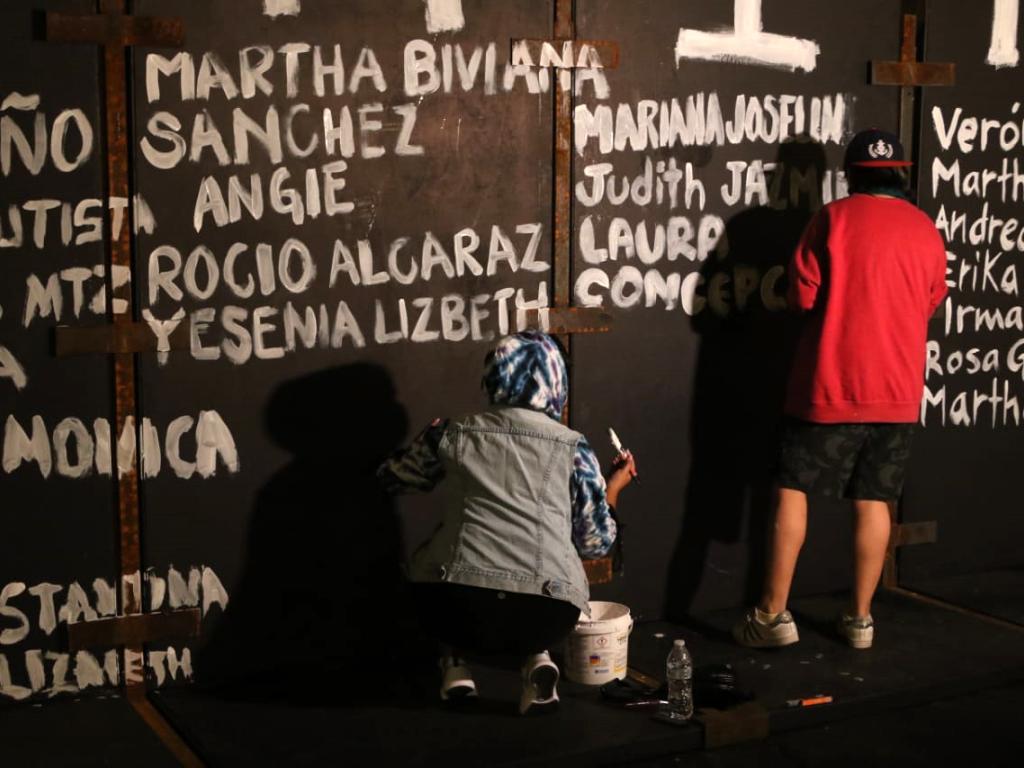 ÑO
UTISTA
MTZ
A
MONICA
LIZMETH
MARTHA BIVIANA
SANCHEZ
ANGIE
ROCIO ALCARAZ
YESENIA LIZBETH
MARIANA JOSELIN
Judith JAZMIN
LAURA
CONCEPC
Veró
Marth
Andrea
Erika
Irma
Rosa G
Marth